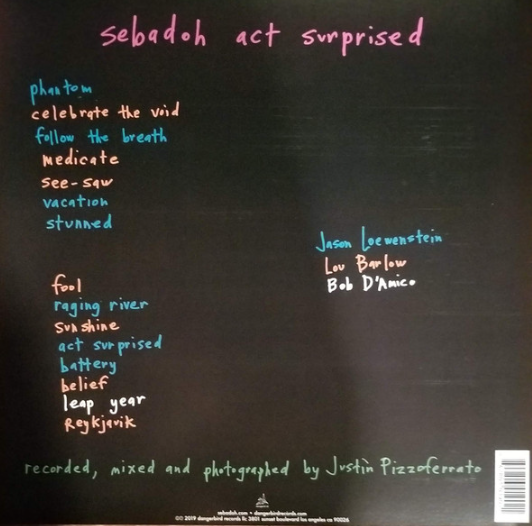 sebadoh act surprised
phantom
celebrate the void
follow the breath
medicate
see-saw
vacation
stunned
Jason Loewenstein
Lou Barlow
Bob D'Amico
fool
raging river
sunshine
act surprised
battery
belief
leap year
Reykjavik
recorded, mixed and photographed by Justin Pizzoferrato
sebadoh.com • dangerbirdrecords.com
©℗ 2019 dangerbird records llc 3801 sunset boulevard los angeles ca 90026